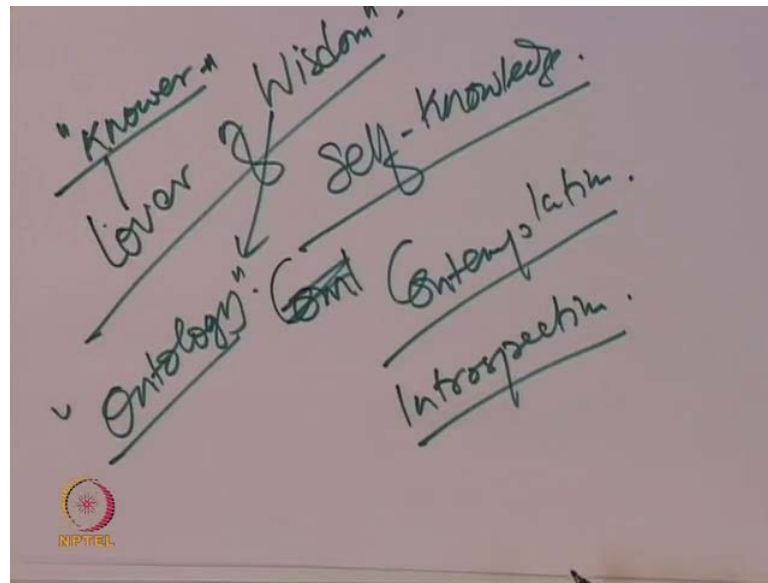 "Knower"
Lover of Wisdom".
Self-Knowledge.
"Ontology".
Contemplation.
Introspection.
NPTEL